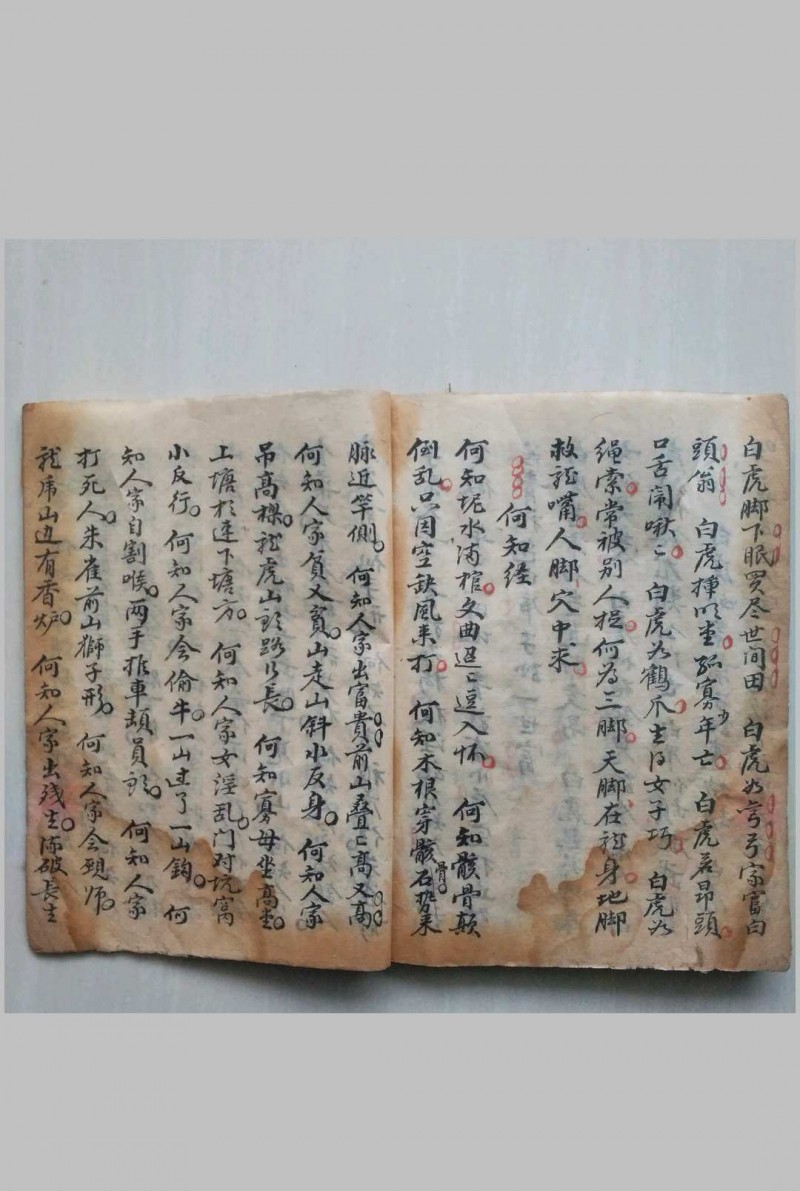 白虎脚下眠买尽世间田 白虎如弯弓家富白
頭翁 白虎捶明堂孤寡少年亡 白虎若昂頭
口舌閙啾〻 白虎如鶴爪生得女子巧 白虎如
绳索常被别人捉何為三脚天脚在龍身地脚
救龍嘴人脚穴中求
何知经
何知坭水滿棺文曲迢〻逗入怀 何知骸骨颠
倒乱只因空缺風来打 何知木根穿骸骨石势来
脉近竿側 何知人家出富貴前山叠〻高又高
何知人家貧又貧山走山斜水反身 何知人家
吊高樑龍虎山頭路行長 何知寡母坐高堂
上塘於連下塘方 何知人家女淫乱门对坑窝
水反行 何知人家会偷牛一山过了一山鈎 何
知人家自割喉两手推車頡員頭 何知人家
打死人朱雀前山獅子形 何知人家会現师
龍虎山边有香炉 何知人家出残生沖破長生